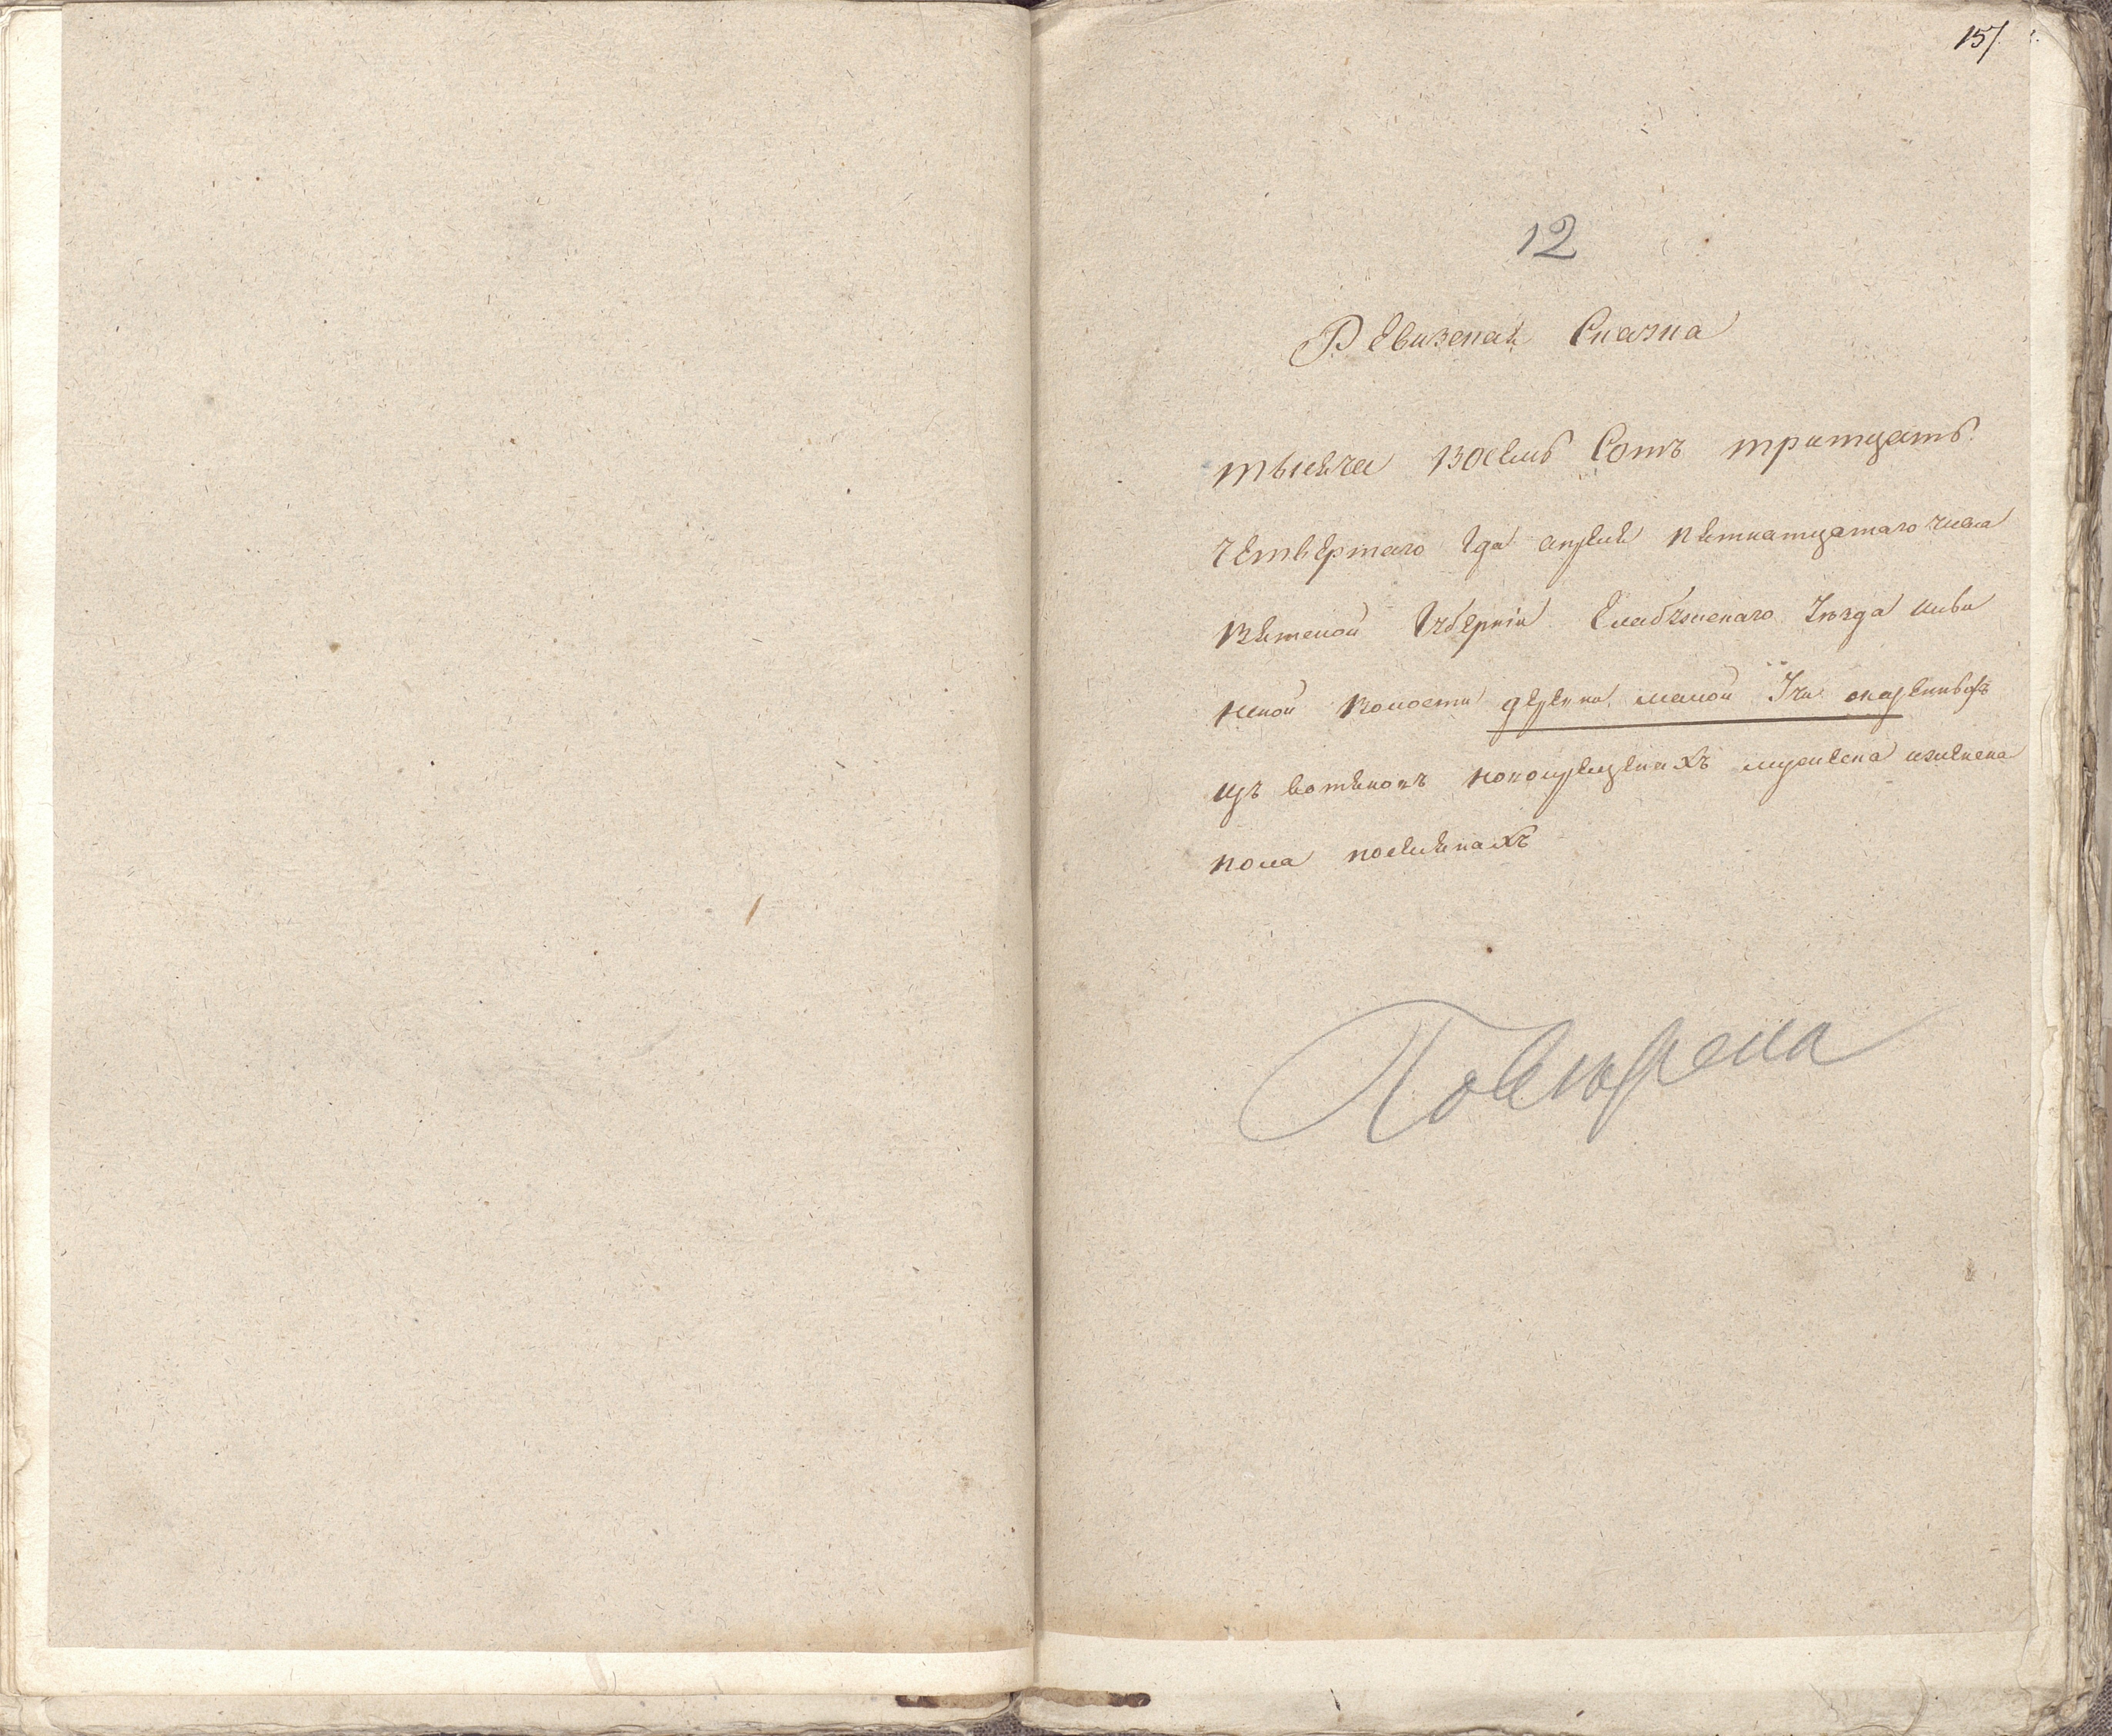 157.
12
Ревизская Сказка
тысяча восемь Сотъ тритцать
четвертаго Года апреля пятнатцатаго числа
Вятской Губерніи Елабужскаго Уезда
нской волости деревни малой Учи
изъ вотяковъ новокрещенахъ мужеска иженска
пола посемянахъ
Поверена